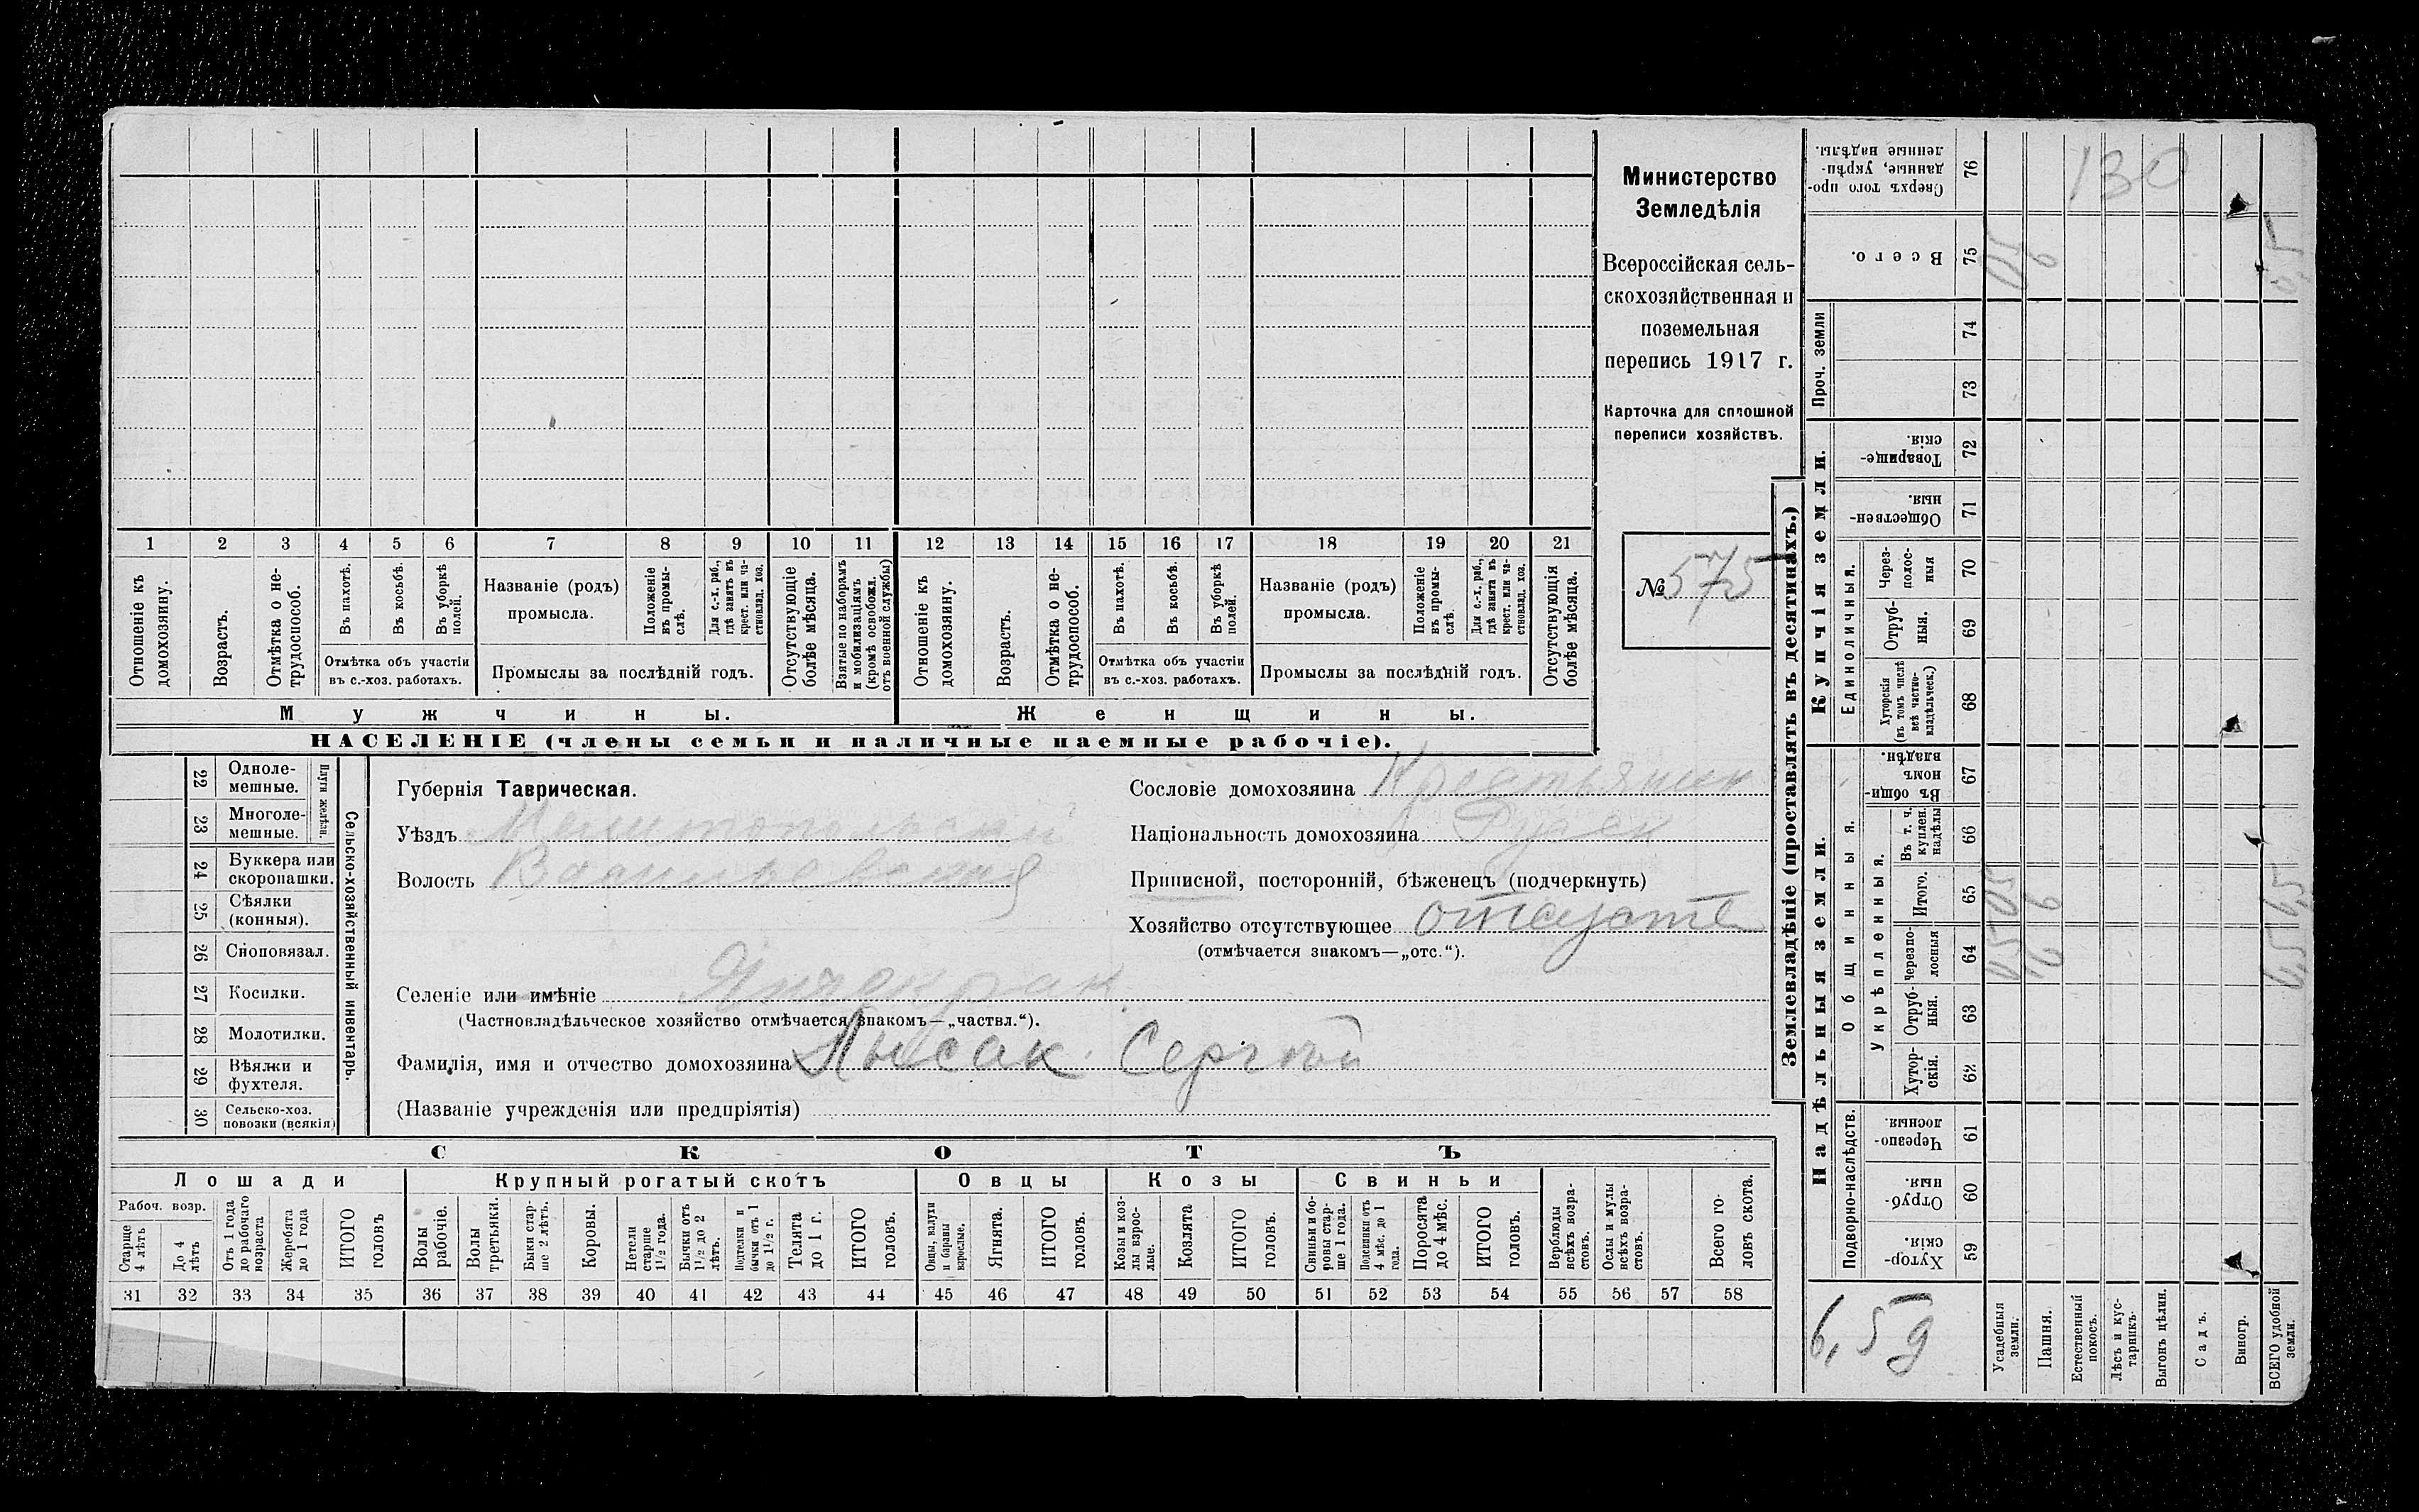 Министерство
Земледѣлія
Всероссійская сель-
скохозяйственная и
поземельная
перепись 1917 г.
Карточка для сплошной
переписи хозяйствъ.
№ 575
1 2 3 4 5 6 7 8 9 10 11 12 13 14 15 16 17 18 19 20 21
Отношеніе къ домохозяину.
Возрастъ.
Отмѣтка о не-трудоспособ.
Въ пахотѣ.
Въ косьбѣ.
Въ уборкѣ полей.
Отмѣтка объ участіи
въ с.-хоз. работахъ.
Названіе (родъ)
промысла.
Положеніе въ промы-слѣ.
Для с.-х. раб., гдѣ занятъ въ крест. или ча-стновлад. хоз.
Промыслы за послѣдній годъ.
Отсутствующіе болѣе мѣсяца.
Взятые по наборамъ и мобилизаціямъ (кромѣ освобожд. отъ военной службы)
Отношеніе къ домохозяину.
Возрастъ.
Отмѣтка о не-трудоспособ.
Въ пахотѣ.
Въ косьбѣ.
Въ уборкѣ полей.
Отмѣтка объ участіи
въ с.-хоз. работахъ.
Названіе (родъ)
промысла.
Положеніе въ промы-слѣ.
Для с.-х. раб., гдѣ занята въ крест. или ча-стновлад. хоз.
Промыслы за послѣдній годъ.
Отсутствующія болѣе мѣсяца.
Мужчины.
Женщины.
НАСЕЛЕНІЕ (члены семьи и наличные наемные рабочіе).
22 Одноле-мешные.
23 Многоле-мешные.
Плуги желѣзн.
24 Буккера или скоропашки.
25 Сѣялки (конныя).
26 Сноповязал.
27 Косилки.
28 Молотилки.
29 Вѣялки и фухтеля.
30 Сельско-хоз. повозки (всякія)
Сельско-хозяйственный инвентарь.
Губернія Таврическая.
Уѣздъ Мелитопольский
Волость Васильевская
Селеніе или имѣніе Янчекрак
(Частновладѣльческое хозяйство отмѣчается знакомъ—„частвл.“).
Фамилія, имя и отчество домохозяина Лысак Сергѣй
(Названіе учрежденія или предпріятія)
Сословіе домохозяина Крестьянин
Національность домохозяина Русск
Приписной, посторонній, бѣженецъ (подчеркнуть)
Хозяйство отсутствующее отсутств
(отмѣчается знакомъ—„отс.“).
СКОТЪ
Лошади
Крупный рогатый скотъ
Овцы
Козы
Свиньи
Рабоч. возр.
Старше 4 лѣтъ
До 4 лѣтъ
Отъ 1 года до рабочаго возраста
Жеребята до 1 года
ИТОГО головъ
Волы рабочіе.
Волы третьяки.
Быки стар-ше 2 лѣтъ.
Коровы.
Нетели старше 1½ года.
Бычки отъ 1½ до 2 лѣтъ.
Подтелки и бычки отъ 1 до 1½ г.
Телята до 1 г.
ИТОГО головъ.
Овцы, валухи и бараны взрослые.
Ягнята.
ИТОГО головъ.
Козы и коз-лы взрос-лые.
Козлята
ИТОГО головъ.
Свиньи и бо-ровы стар-ше 1 года.
Подсвинки отъ 4 мѣс. до 1 года.
Поросята до 4 мѣс.
ИТОГО головъ.
Верблюды всѣхъ возра-стовъ.
Ослы и мулы всѣхъ возра-стовъ.
Всего го-ловъ скота.
31 32 33 34 35 36 37 38 39 40 41 42 43 44 45 46 47 48 49 50 51 52 53 54 55 56 57 58
Землевладѣніе (проставлять въ десятинахъ.)
Надѣльныя земли.
Купчія земли.
Проч. земли
Подворно-наслѣдств.
Общинныя.
Укрѣпленныя.
Единоличныя.
76 Сверхъ того про-данные, укрѣп-ленные надѣлы.
130
75 Всего.
74
73
72 Товарище-скія.
71 Обществен-ныя.
70 Через-полос-ныя
69 Отруб-ныя.
68 Хуторскія (въ томъ числѣ всѣ частно-владѣльческ.)
67 Въ общин-номъ владѣн.
66 Въ т. ч. куплен. надѣлы
65 Итого.
64 Черезпо-лосныя
63 Отруб-ныя.
62 Хутор-скія.
61 Черезпо-лосныя.
60 Отруб-ныя.
59 Хутор-скія.
6,5 д
Усадебныя земли.
Пашня.
Естественный покосъ.
Лѣсъ и кус-тарникъ.
Выгонъ цѣлин.
Садъ.
Виногр.
ВСЕГО удобной земли.